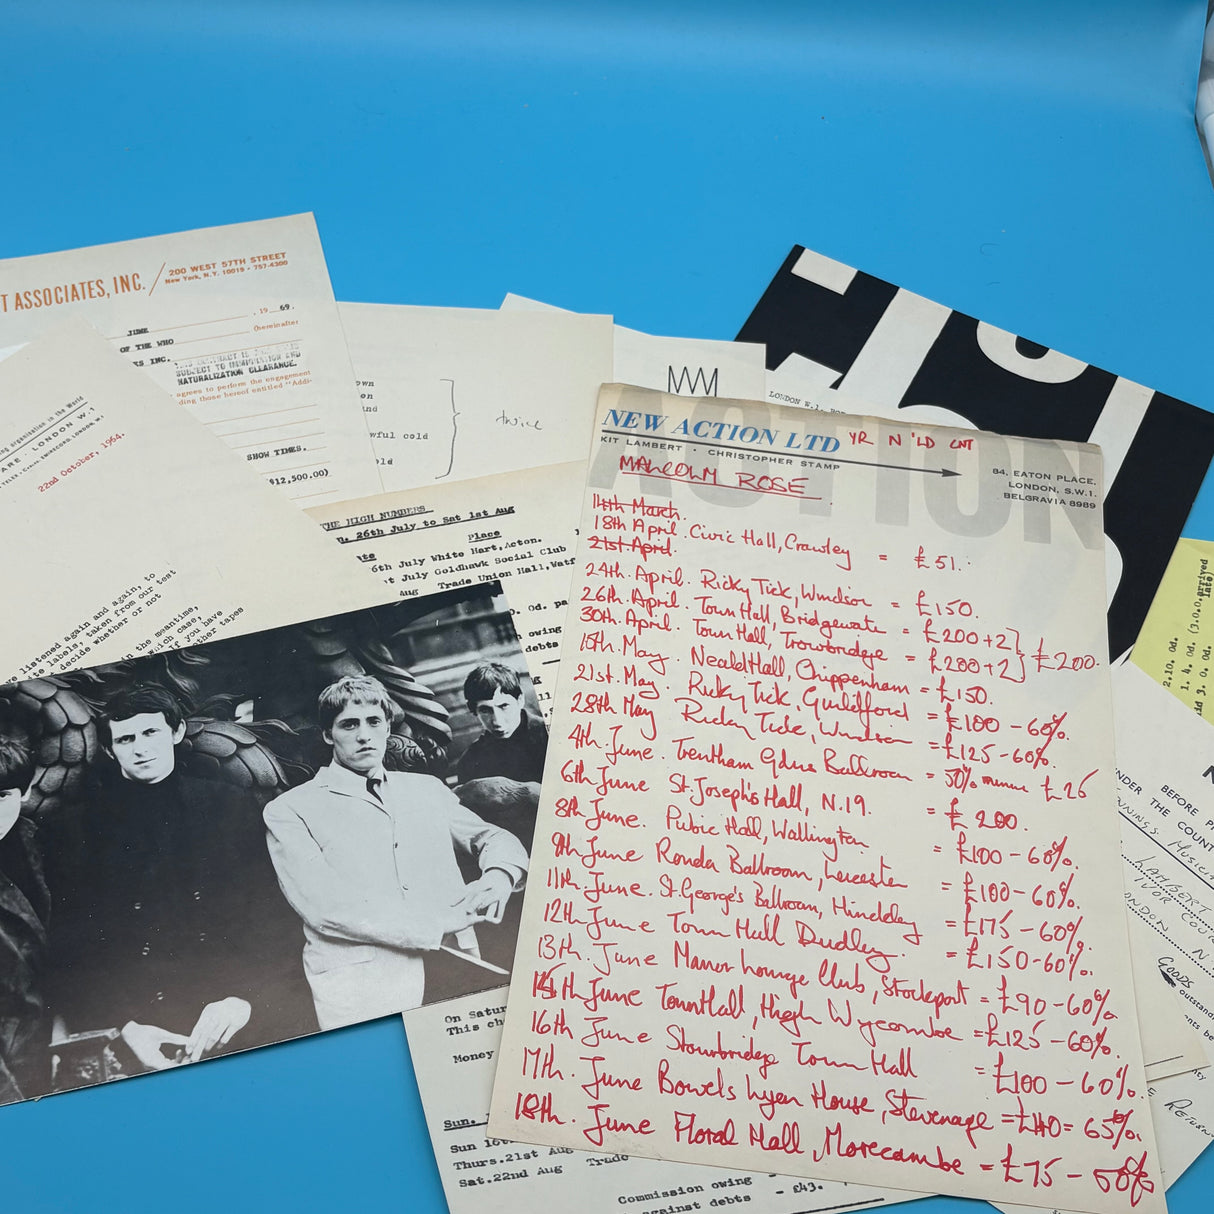 T ASSOCIATES, INC. / 200 WEST 57TH STREET
New York, N.Y. 10019 · 757-4300
JUNE , 19 69.
OF THE WHO (hereinafter
ES INC. THIS CONTRACT IS
SUBJECT TO IMMIGRATION AND
NATURALIZATION CLEARANCE.
agrees to perform the engagement
ding those hereof entitled "Addi-
SHOW TIMES.
$12,500.00)
organisation in the World
ARE · LONDON W.1
22nd October, 1964.
listened again and again, to
te labels, taken from our test
decide whether or not
n the meantime,
hich case,
If you have
ther tapes
own
on
and
wful cold
old
twice
LONDON W.1.
THE HIGH NUMBERS
N. 26th July to Sat 1st Aug
ate Place
6th July White Hart, Acton.
t July Goldhawk Social Club
Aug Trade Union Hall, Watf
Od. pa
owing
debts
NEW ACTION LTD YR N 'LD CNT
KIT LAMBERT · CHRISTOPHER STAMP
84, EATON PLACE,
LONDON, S.W.1.
BELGRAVIA 8989
ACTION
MALCOLM ROSE
14th March.
18th April. Civic Hall, Crawley = £51.
21st. April.
24th. April. Ricky Tick, Windsor = £150.
26th. April. Town Hall, Bridgewater = £200+2
30th. April. Town Hall, Trowbridge = £200+2 } £200.
15th. May. Neald Hall, Chippenham = £150.
21st. May. Ricky Tick, Guildford = £100 - 60%.
28th May Ricky Tick, Windsor = £125 - 60%.
4th. June. Trentham Gdns Ballroom = 50% minus £26
6th June St. Joseph's Hall, N.19. = £200.
8th June. Public Hall, Wallington = £100 - 60%.
9th June Ronda Ballroom, Leicester = £100 - 60%.
11th. June. St. George's Ballroom, Hinckley = £175 - 60%.
12th June Town Hall Dudley. = £150 - 60%.
13th. June Manor Lounge Club, Stockport = £90 - 60%
15th June Town Hall, High Wycombe = £125 - 60%.
16th June Stourbridge Town Hall = £100 - 60%.
17th. June Bowes Lyon House, Stevenage = £110 = 65%.
18th. June Floral Hall, Morecambe = £75 - 60%
On Satur
This ch
Money
Sun.
Sun 16th
Thurs. 21st Aug
Sat. 22nd Aug Trade
Commission owing
against debts - £43.
2.10. Od.
1. 4. Od. (3.0.0. arrived
late)
aid 3. 0. Od.
BEFORE P
UNDER THE COUNT
MUSIC
LAMBERT
IVOR COUR
ONDON N
GOODS
outstand
RETURN